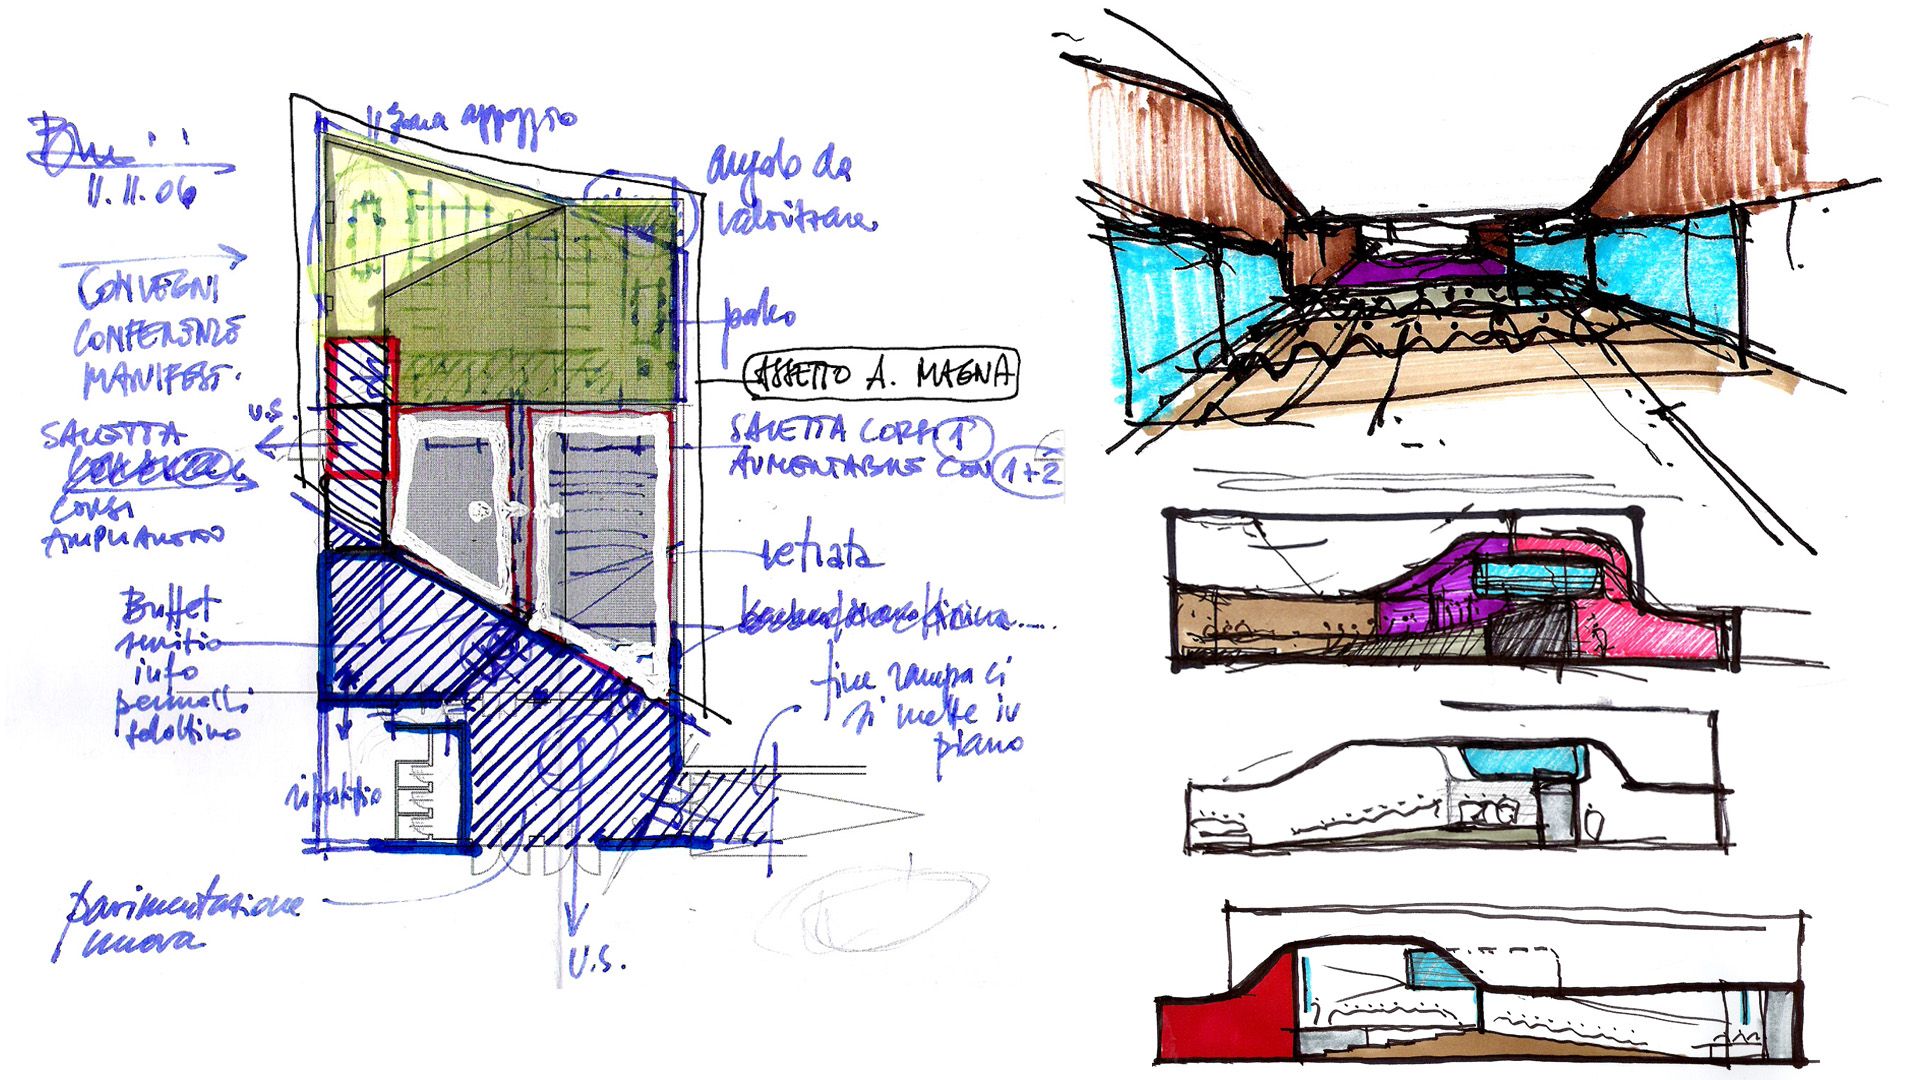 11.11.06
zona appoggio
angolo da
valorizzare
CONVEGNI
CONFERENZE
MANIFEST.
palco
ASSETTO A. MAGNA
U.S.
SALETTA
CORSI
AMPLIAMENTO
SALETTA CORSI 1
AUMENTABILE CON 1+2
vetrata
Buffet
servizio
info
pannelli
fine rampa ci
si mette in
piano
pavimentazione
nuova
U.S.